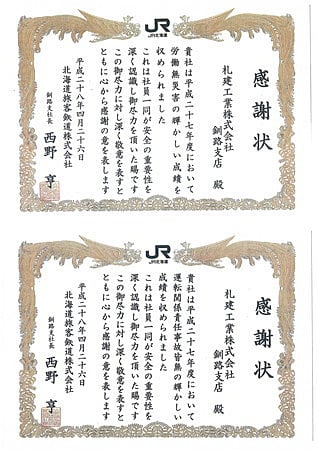 JR
JR北海道
感謝状
札建工業株式会社
釧路支店 殿
貴社は平成二十七年度において
労働無災害の輝かしい成績を
収められました
これは社員一同が安全の重要性を
深く認識し御尽力を頂いた賜です
この御尽力に対し深く敬意を表すと
ともに心から感謝の意を表します
平成二十八年四月二十六日
北海道旅客鉄道株式会社
釧路支社長 西野 亨
JR
JR北海道
感謝状
札建工業株式会社
釧路支店 殿
貴社は平成二十七年度において
運転関係責任事故皆無の輝かしい
成績を収められました
これは社員一同が安全の重要性を
深く認識し御尽力を頂いた賜です
この御尽力に対し深く敬意を表すと
ともに心から感謝の意を表します
平成二十八年四月二十六日
北海道旅客鉄道株式会社
釧路支社長 西野 亨